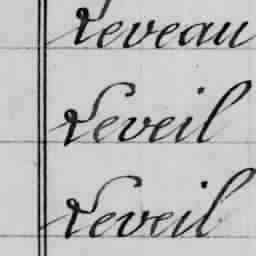 Leveau
Leveil
Leveil